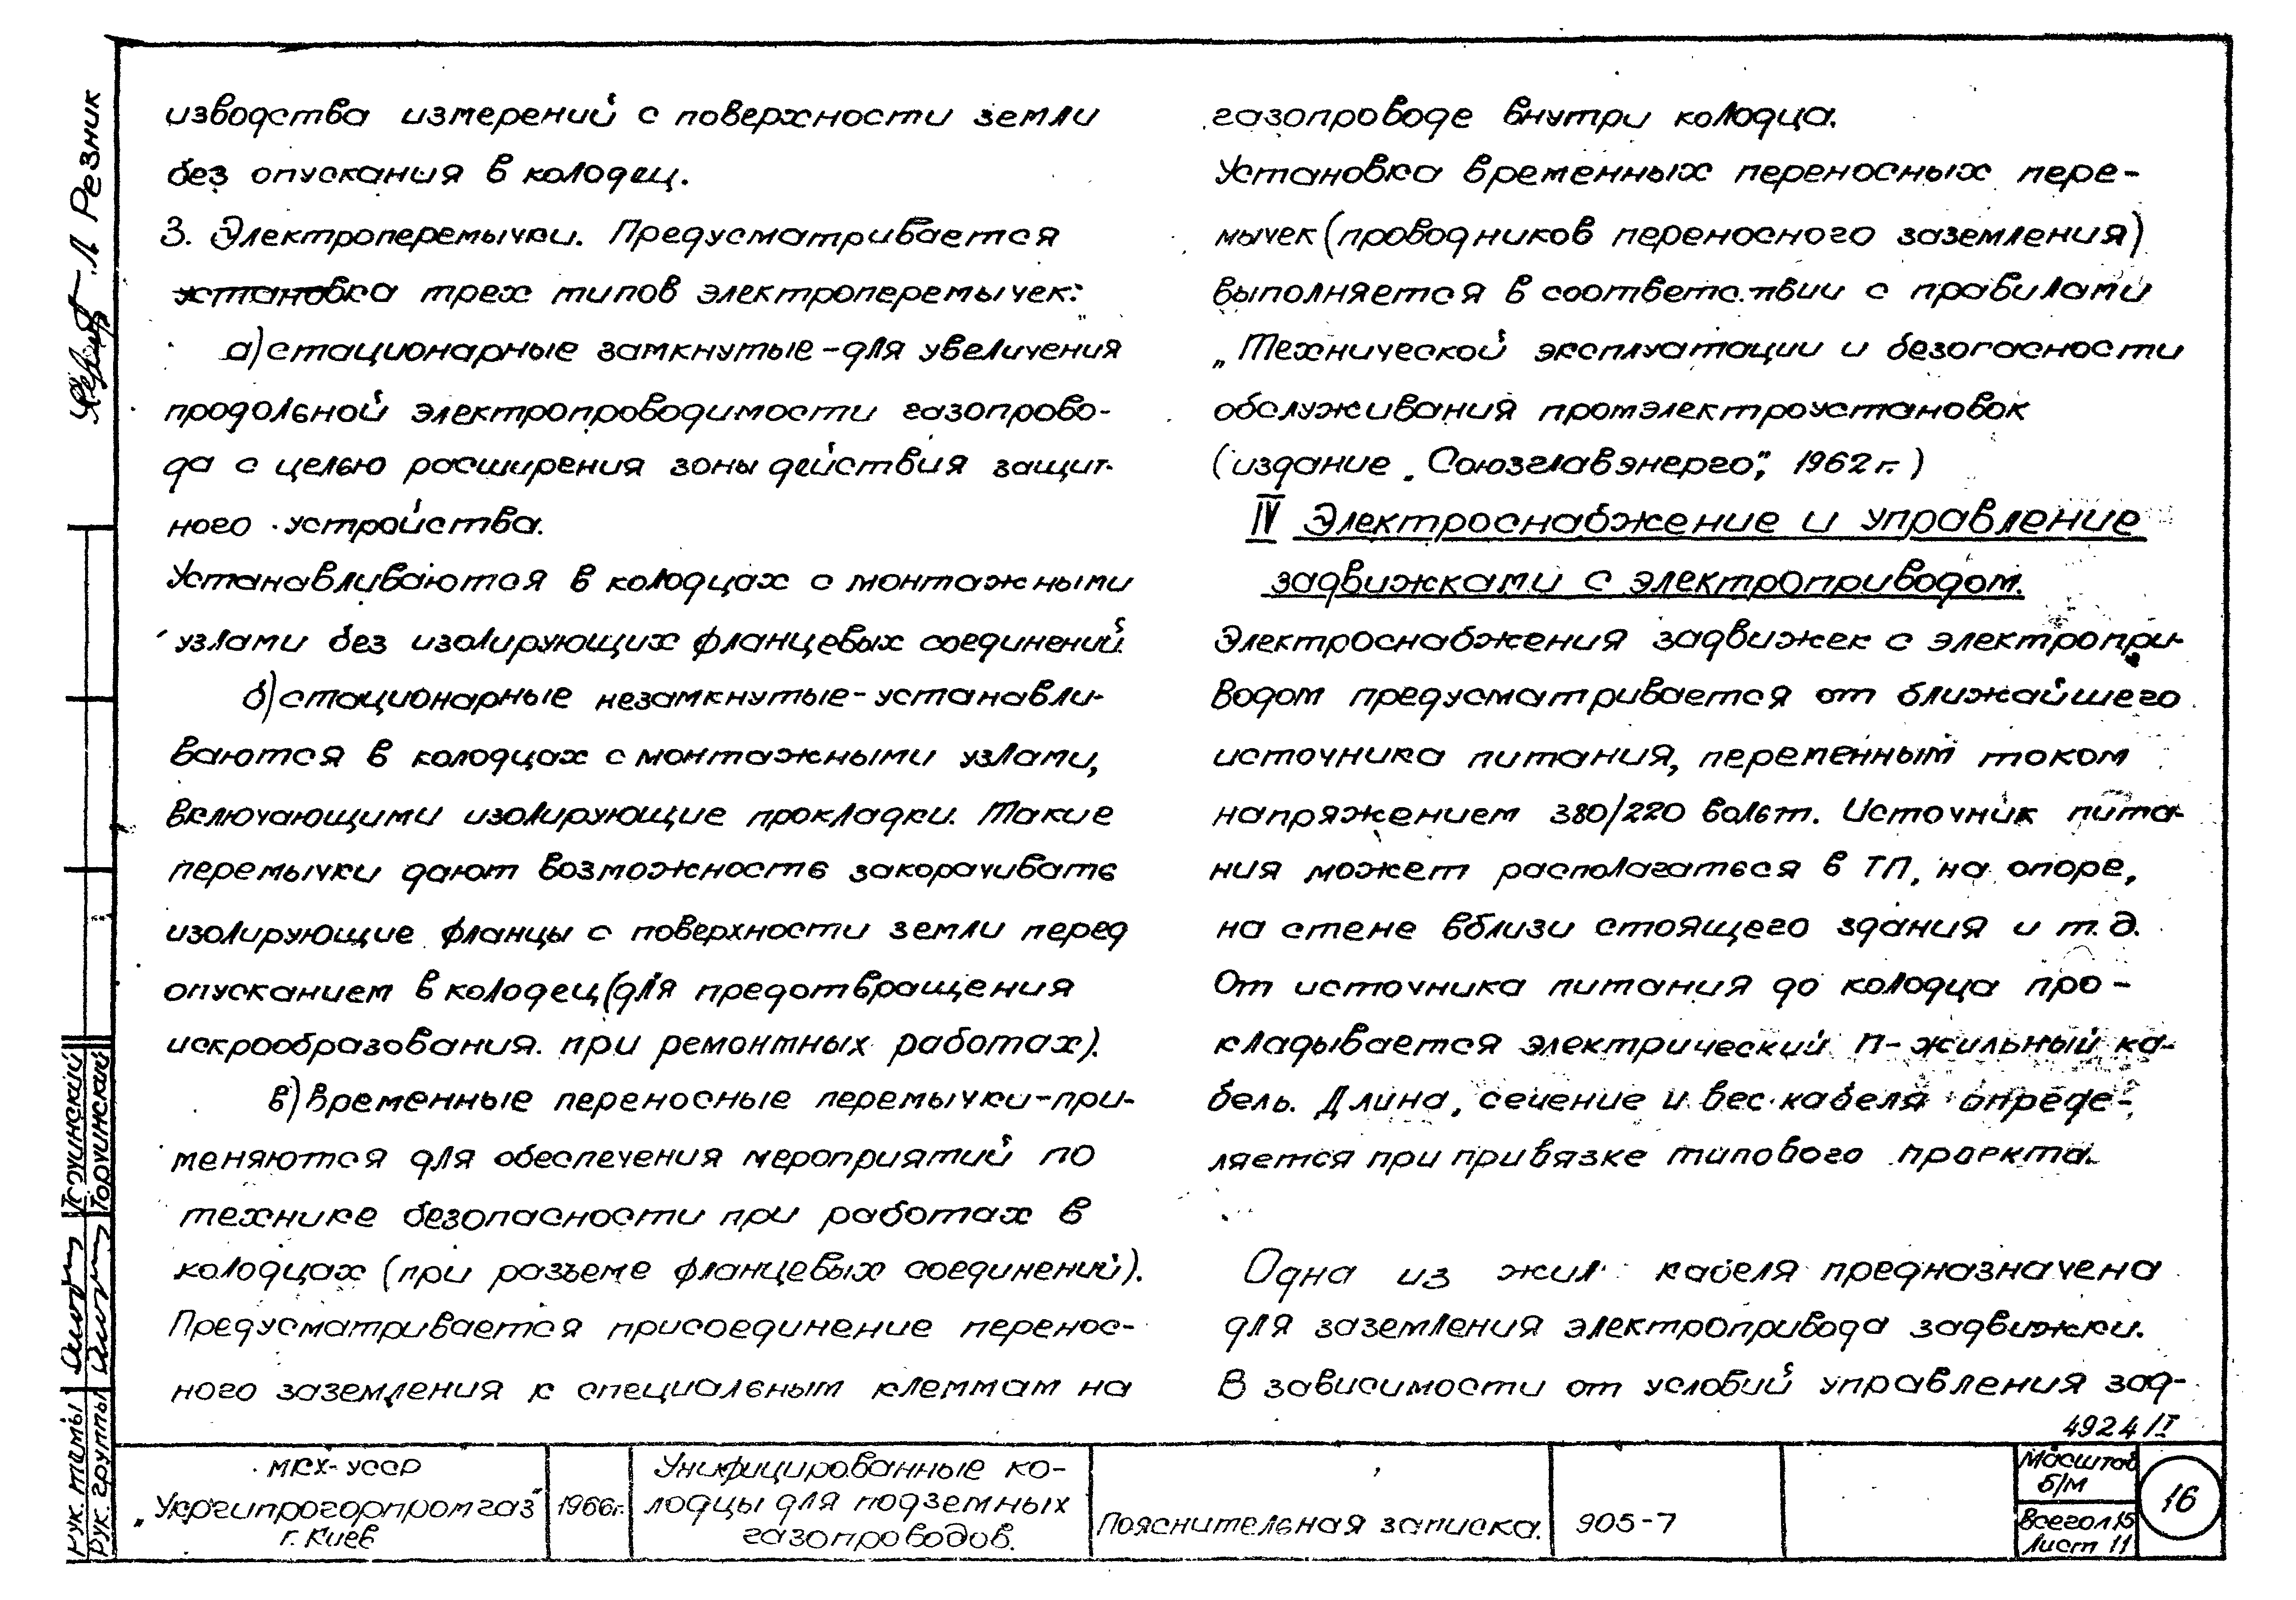 изводства измерений с поверхности земли
без опускания в колодец.
3. Электроперемычки. Предусматривается
установка трех типов электроперемычек:
а) стационарные замкнутые - для увеличения
продольной электропроводимости газопрово-
да с целью расширения зоны действия защит-
ного устройства.
Устанавливаются в колодцах с монтажными
узлами без изолирующих фланцевых соединений.
б) стационарные незамкнутые - устанавли-
ваются в колодцах с монтажными узлами,
включающими изолирующие прокладки. Такие
перемычки дают возможность закорачивать
изолирующие фланцы с поверхности земли перед
опусканием в колодец (для предотвращения
искрообразования при ремонтных работах).
в) временные переносные перемычки - при-
меняются для обеспечения мероприятий по
технике безопасности при работах в
колодцах (при разъеме фланцевых соединений).
Предусматривается присоединение перенос-
ного заземления к специальным клеммам на
газопроводе внутри колодца.
Установка временных переносных пере-
мычек (проводников переносного заземления)
выполняется в соответствии с правилами
„Технической эксплуатации и безопасности
обслуживания промэлектроустановок
(издание „Союзглавэнерго", 1962 г.)
IV Электроснабжение и управление
задвижками с электроприводом.
Электроснабжения задвижек с электропри-
водом предусматривается от ближайшего
источника питания, переменным током
напряжением 380/220 вольт. Источник пита-
ния может располагаться в ТП, на опоре,
на стене вблизи стоящего здания и т.д.
От источника питания до колодца про-
кладывается электрический п-жильный ка-
бель. Длина, сечение и вес кабеля опреде-
ляется при привязке типового проекта.
Одна из жил кабеля предназначена
для заземления электропривода задвижки.
В зависимости от условий управления зад-
4924/I
МКХ-УССР
„Укргипрогорпромгаз"
г. Киев
1966г.
Унифицированные ко-
лодцы для подземных
газопроводов.
Пояснительная записка.
905-7
Масштаб
б/м
Всего л 15
Лист 11
16
Л Резник
Рук. темы
Торчинский
Рук. группы
Торчинский